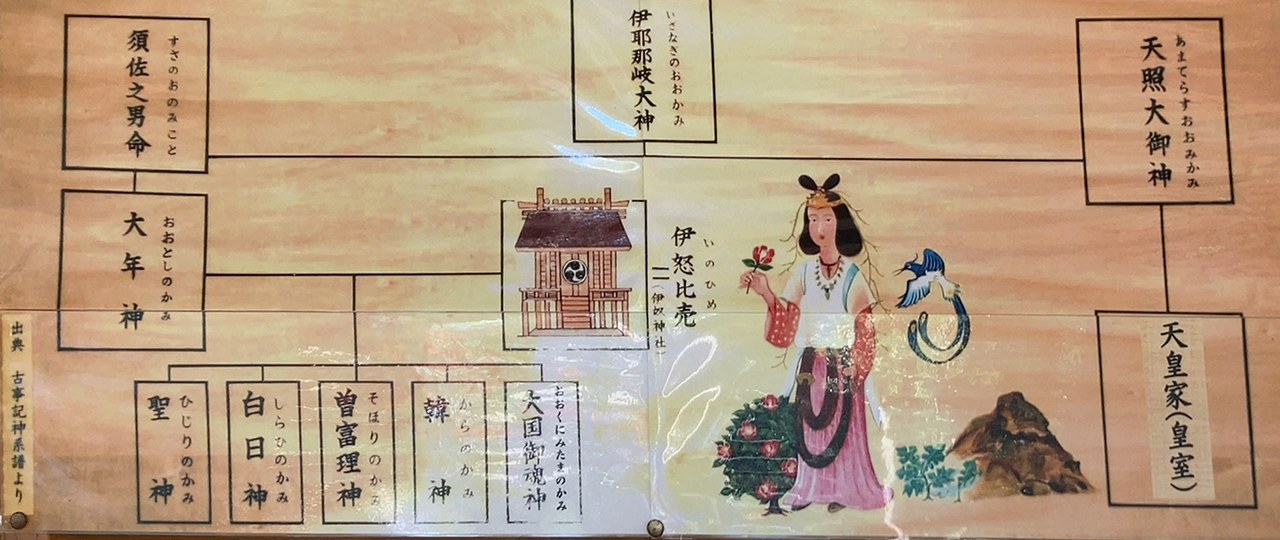 いざなぎのおおかみ
伊耶那岐大神
あまてらすおおみかみ
天照大御神
天皇家(皇室)
すさのおのみこと
須佐之男命
おおとしのかみ
大年神
いのひめ
伊怒比売
(伊奴神社)
おおくにみたまのかみ
大国御魂神
からのかみ
韓神
そほりのかみ
曽富理神
しらひのかみ
白日神
ひじりのかみ
聖神
出典 古事記神系譜より